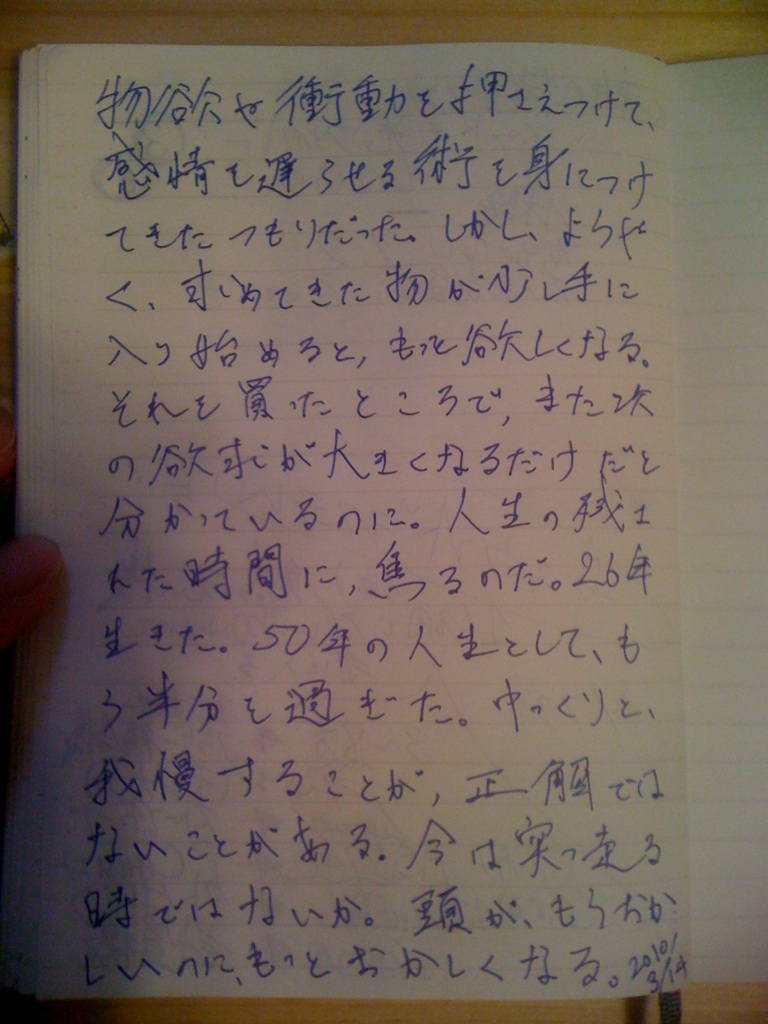 物欲や衝動を押さえつけて、
感情を遅らせる術を身につけ
てきたつもりだった。しかし、ようや
く、求めてきた物が少し手に
入り始めると、もっと欲しくなる。
それを買ったところで、また次
の欲求が大きくなるだけだと
分かっているのに。人生の残さ
れた時間に、焦るのだ。26年
生きた。50年の人生として、も
う半分を過ぎた。ゆっくりと、
我慢することが、正解では
ないことがある。今は突っ走る
時ではないか。頭が、もうおか
しいのに、もっとおかしくなる。2010/
3/14